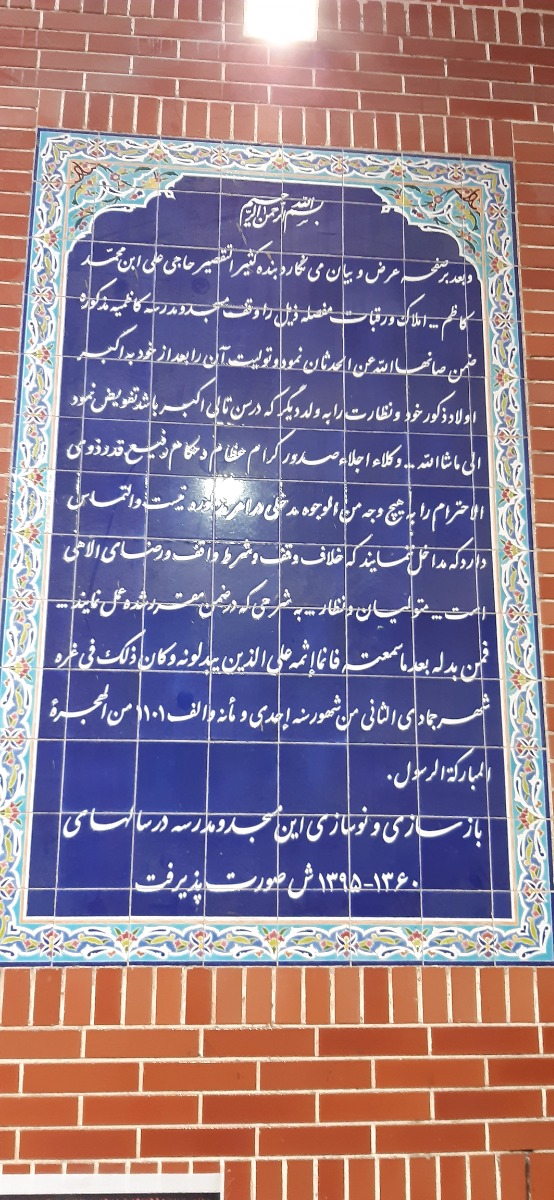 بسم الله الرحمن الرحیم
و بعد بر صفحه عرض و بیان می نگارد بنده کثیر التقصیر حاجی علی ابن محمد
کاظم .. املاک و رقبات مفصله ذیل را وقف مسجد و مدرسه کاظمیه مذکوره
ضمن صانها الله عن الحدثان نمود و تولیت آن را بعد از خود به اکبر
اولاد ذکور خود و نظارت را به ولد دیگر که در سن تالی اکبر باشد تفویض نمود
الی ماشاالله .. وکلاء اجلاء صدور کرام عظام و حکام رفیع قدر ذوی
الاحترام را به هیچ وجه من الوجوه مدخلی در امر مذکوره نیست و التماس
دارد که مداخل ننمایند که خلاف وقف و شرط واقف و رضای الاهی
است .. متولیان و نظار .. به شرحی که در ضمن مقرر شده عمل نمایند ..
فمن بدله بعد ما سمعته فانما إثمه علی الذین یبدلونه و کان ذلک فی غره
شهر جمادی الثانی من شهور سنه إحدی و مأنه و الف ۱۱۰۱ من الهجرة
المبارکة الرسول.
بازسازی و نوسازی این مسجد و مدرسه در سالهای
۱۳۶۰-۱۳۹۵ ش صورت پذیرفت